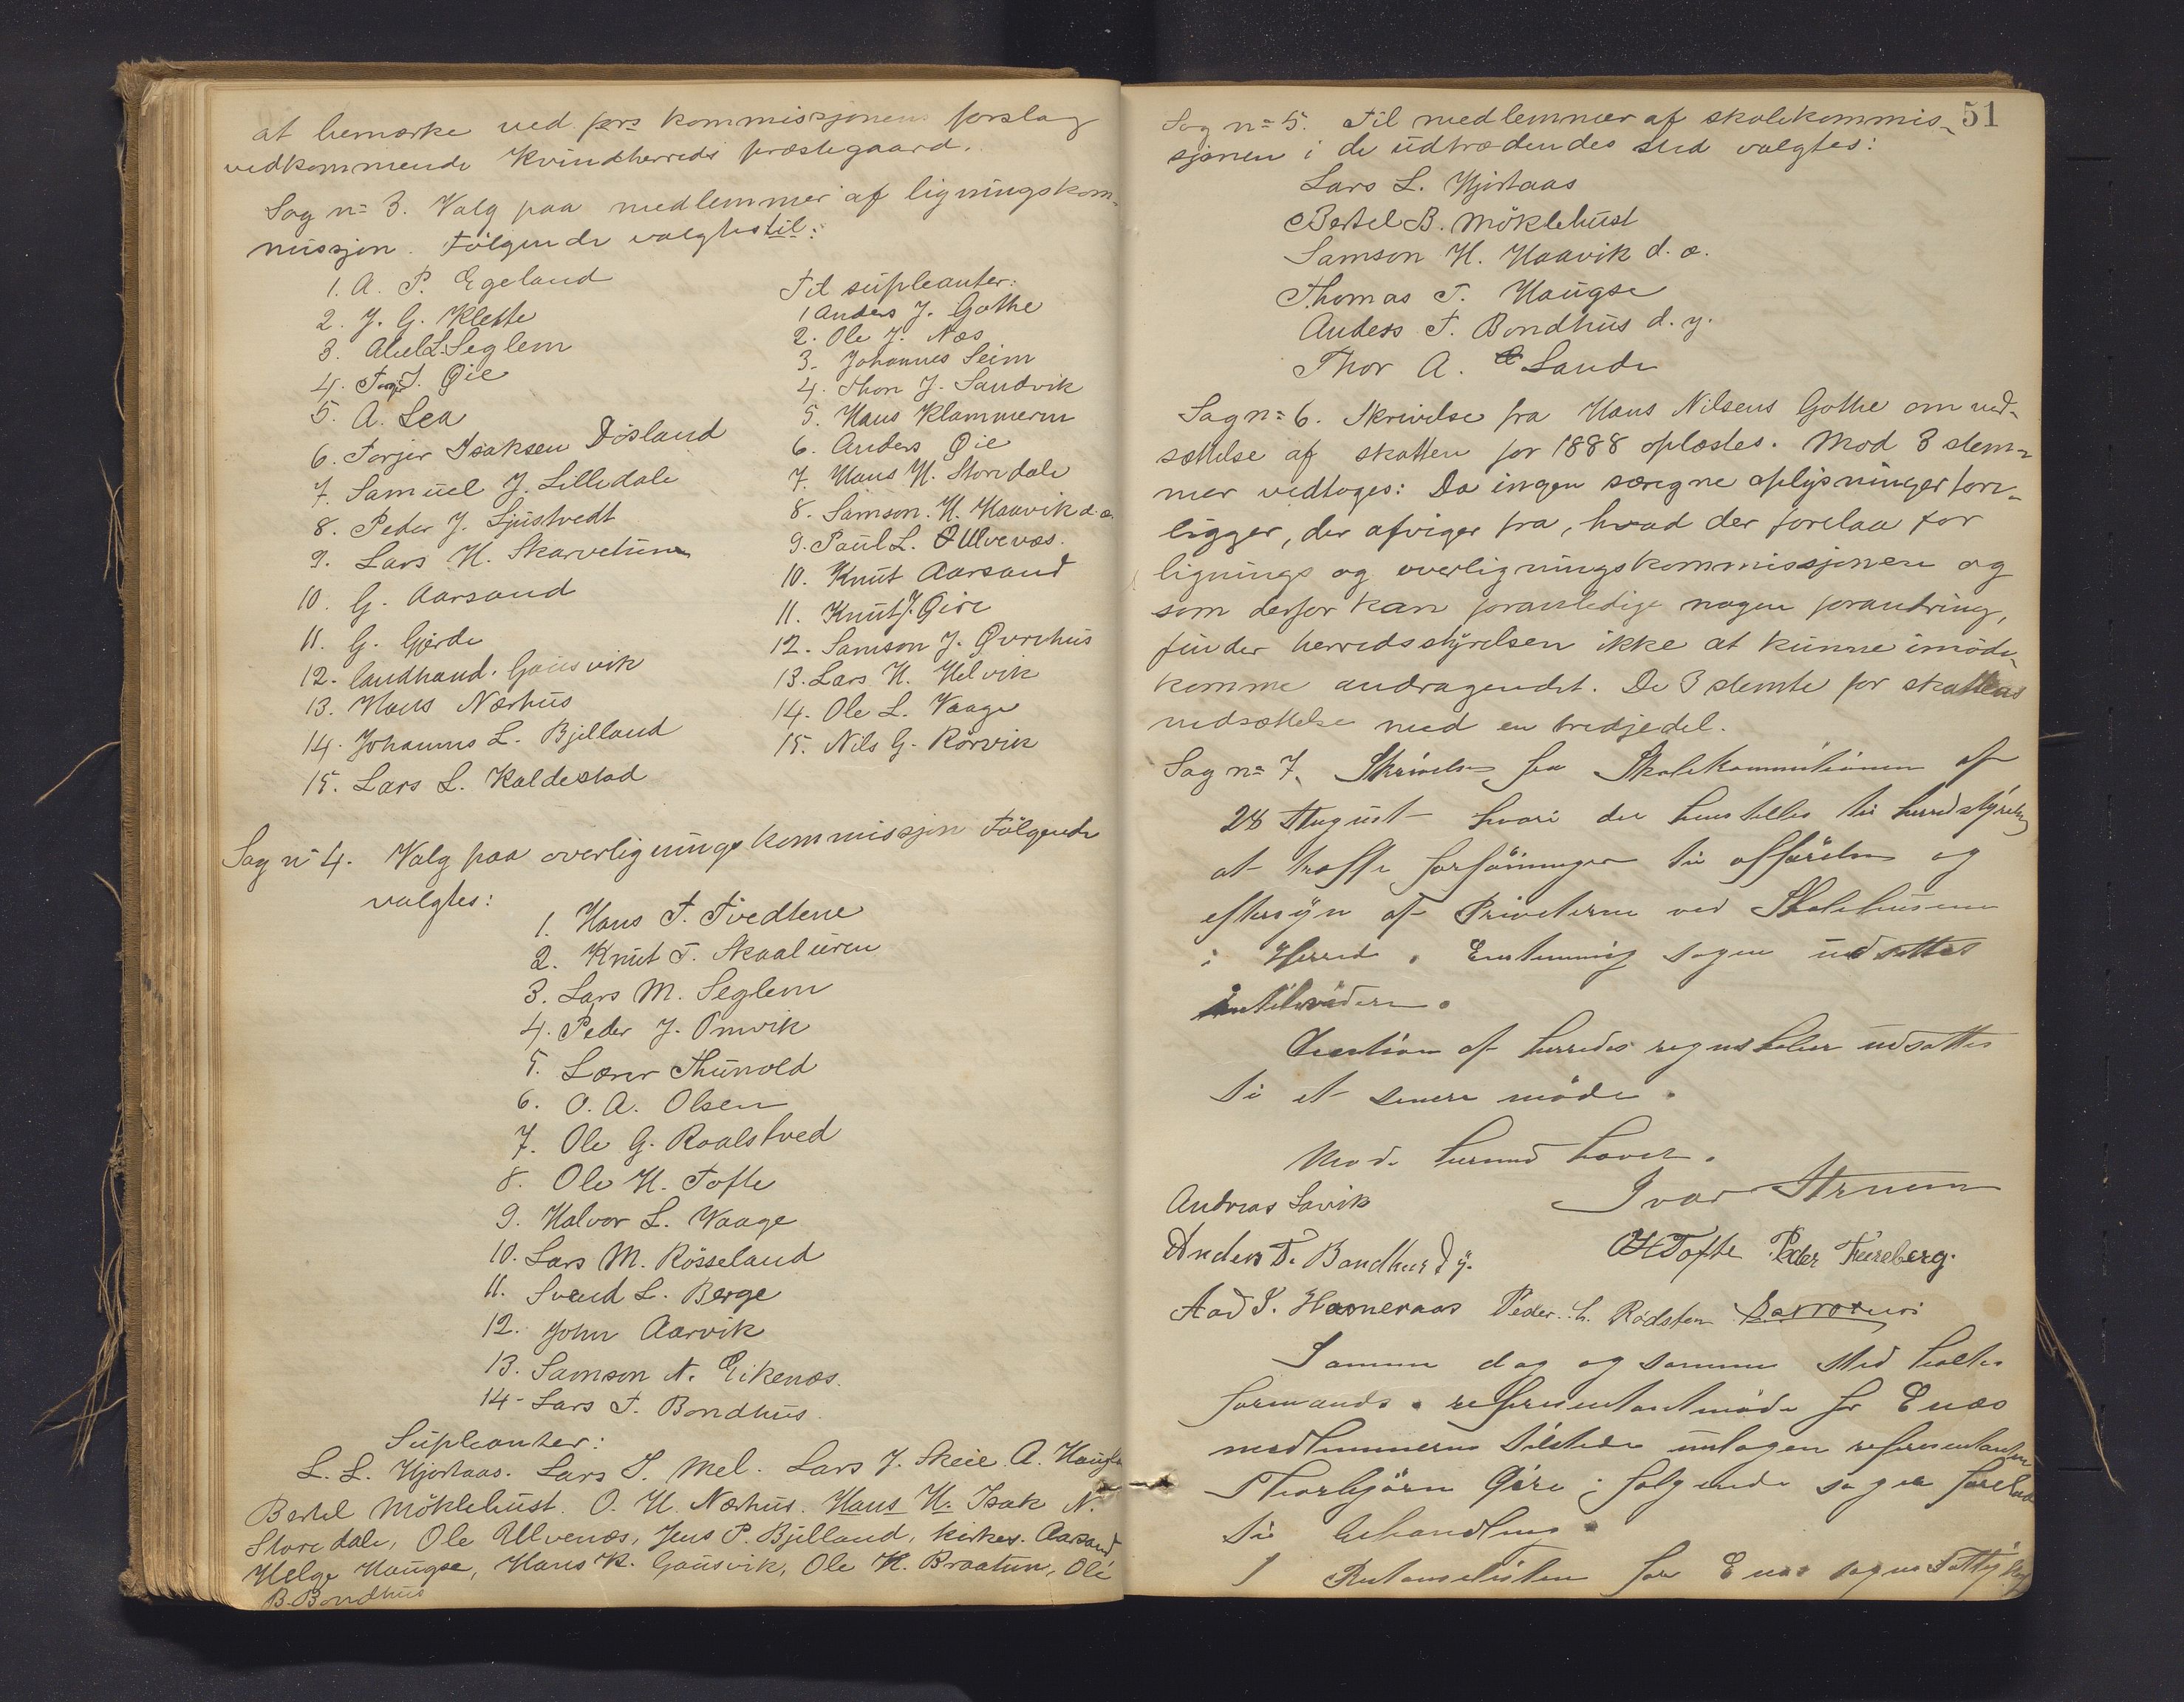 at bemærke ved kommissjonens forslag
vedkommende Kvindherreds præstegaard.
Sag n= 3. Valg paa medlemmer af ligningskom-
missjon. Følgende valgtes til:
1. A. P. Egeland
2. J. G. Klette
3. Abel L. Seglem
4. J. Øie
5. A. Lea
6. Torjer Isaksen Dösland
7. Samuel J. Lilledale
8. Peder J. Ljustvedt
9. Lars H. Skarvetun
10. G. Aarsand
11. G. Gjerde
12. landhand. Gausvik
13. Hans Nærhus
14. Johannes L. Bjelland
15. Lars L. Kaldestad
Til supleanter:
1 Anders J. Gothe
2. Ole J. Næs
3. Johannes Seim
4. Thon J. Sandvik
5. Hans Klammerm
6. Anders Øie
7. Hans H. Storedale
8. Samson H. Haavik d.æ.
9. Paul L. Ulvenæs.
10. Knut Aarsand
11. Knut J. Øire
12. Samson J. Øvrehus
13. Lars H. Helvik
14. Ole L. Vaage
15. Nils G. Rörvik
Sag n= 4. Valg paa overligningskommissjon Følgende
valgtes:
1. Hans T. Tvedtene
2. Knut T. Skaaluren
3. Lars M. Seglem
4. Peder J. Omvik
5. Lærer Thunold
6. O. A. Olsen
7. Ole G. Roalstved
8. Ole H. Tofte
9. Halvor L. Vaage
10. Lars M. Rösseland
11. Svend L. Berge
12. John Aarvik
13. Samson N. Eikenæs.
14 - Lars T. Bondhus.
Supleanter:
L. L. Hjortaas. Lars S. Mel. Lars J. Skeie. A.
Bertel Möklebust. O. H. Nærhus. Hans H. Isak N.
Storedale, Ole Ulvenæs, Jens P. Bjelland, kirkes. Aarsand
Helge Haugse, Hans K. Gausvik, Ole K. Braatun, Ole
B. Bondhus
51
Sag n= 5. Til medlemmer af skolekommis-
sjonen i de udtrædendes sted valgtes:
Lars L. Hjortaas
Bertel B. Möklebust
Samson H. Haavik d. æ.
Thomas T. Haugse
Anders T. Bondhus d. y.
Thor A. Sande
Sag n= 6. Skrivelse fra Hans Nilsens Gothe om ned-
sættelse af skatten for 1888 oplæstes. Mod 3 stem-
mer vedtoges: Da ingen særegne oplysninger fore-
ligger, der afviger fra, hvad der forelaa for
lignings og overligningskommissjonen og
som derfor kan foranledige nogen forandring,
finder herredsstyrelsen ikke at kunne imöde-
komme andragendet. De 3 stemte for skattens
nedsættelse med en tredjedel.
Sag n= 7. Skrivelse fra Skolekommissionen af
28 August hvori der henstilles til herredsstyrelsen
at træffe forföininger til opförelse og
eftersyn af Priveterne ved Skolehusene
i Herred. Enstemmig sagen udsættes
indtilvidere.
Decision af herredsregnskaber udsættes
til et senere möde.
Möde hermed hævet.
Andreas Savik
Ivar
Anders T. Bondhus d y.
OHTofte Peder Fureberg.
Aad S. Hammeraas Peder. L. Rødsten
Samme dag og samme sted holdtes
formands. representantmöde for Enæs
medlemmerne tilstede undtagen representanten
Thorbjörn Øire; følgende sager forelaa
til behandling
1 Restanselisten for Enæs sogns Fattig